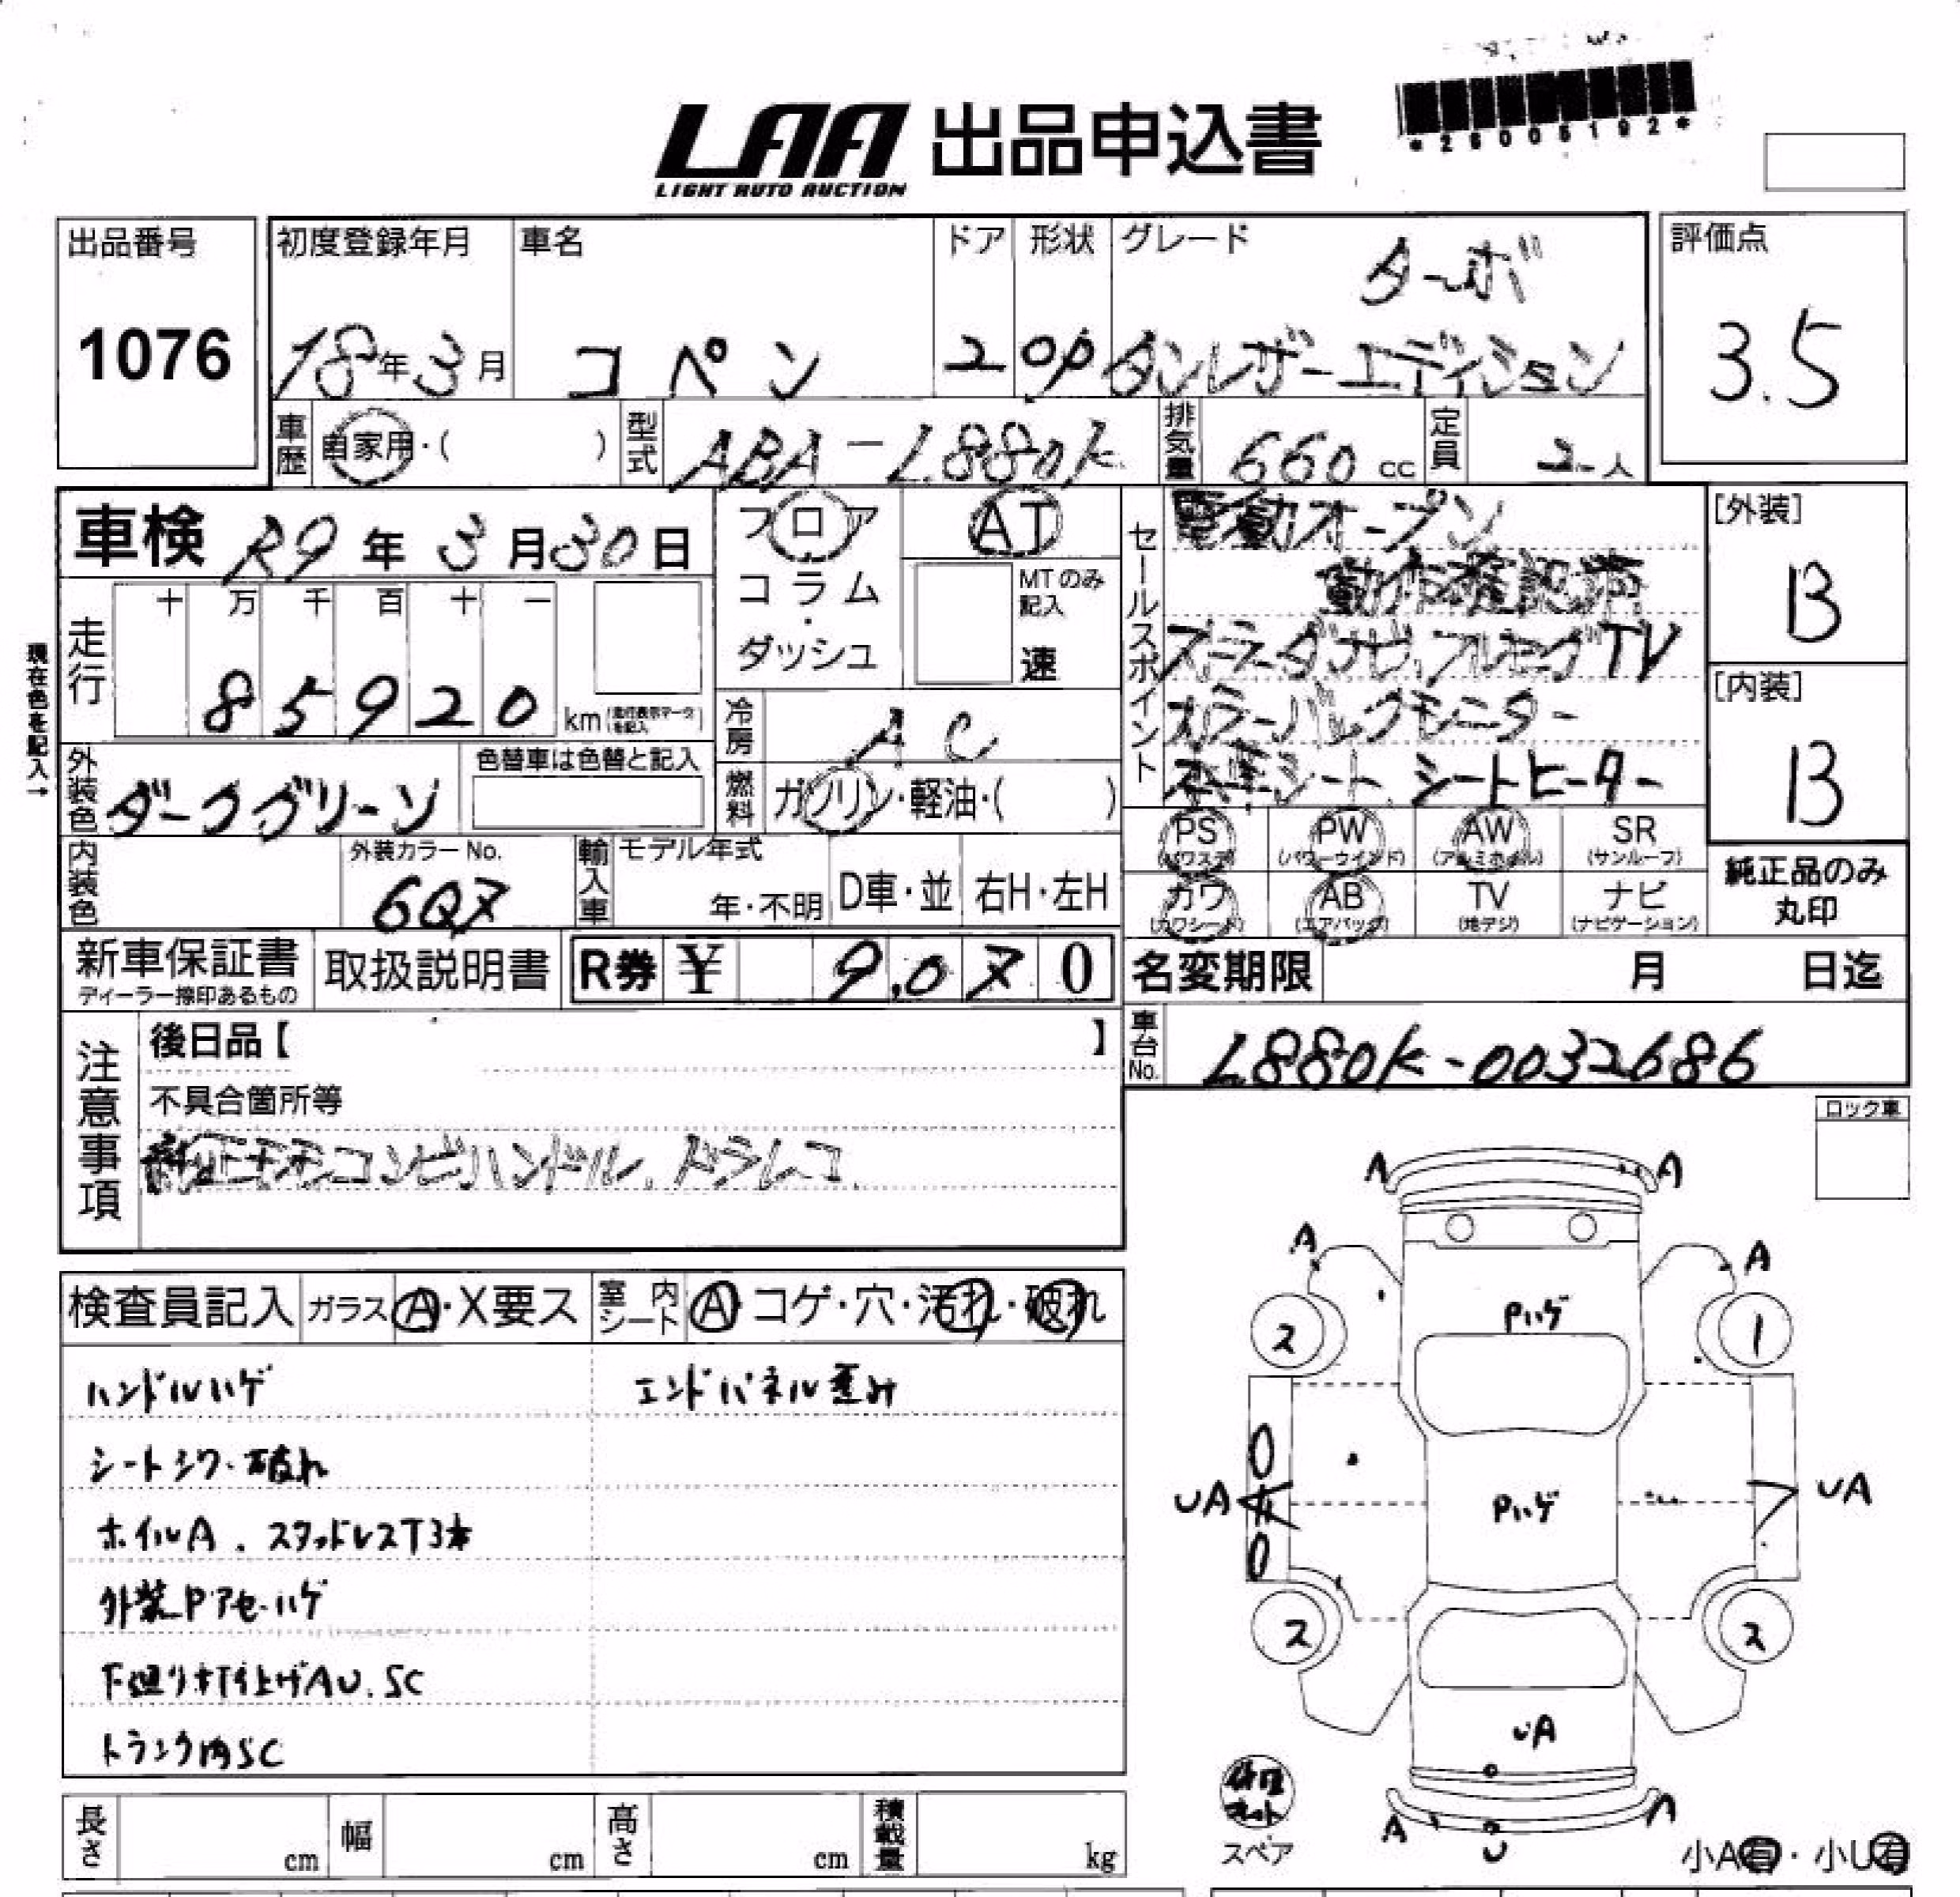 LAA 出品申込書
LIGHT AUTO AUCTION
*26005192*
出品番号
1076
初度登録年月
18年3月
車名
コペン
ドア
2
形状
OP
グレード
ターボ
タンレザーエディション
評価点
3.5
車歴 自家用・( )
型式 ABA-L880K
排気量 660 cc
定員 2人
車検 R9年3月30日
フロア
コラム
・
ダッシュ
AT
MTのみ記入
速
現在色を記入→
走行
十 万 千 百 十 一
8 5 9 2 0 km
冷房 AC
燃料 ガソリン・軽油・( )
外装色 ダークグリーン
色替車は色替と記入
内装色
外装カラーNo.
6Q7
輸入車
モデル年式
年・不明
D車・並
右H・左H
セールスポイント
電動オープン
動作確認済
ストラーダナビ、フルセグTV
カラーバックモニター
本革シート、シートヒーター
PS (パワステ)
PW (パワーウインド)
AW (アルミホイル)
SR (サンルーフ)
カワ (カワシート)
AB (エアバッグ)
TV (地デジ)
ナビ (ナビゲーション)
[外装]
B
[内装]
B
純正品のみ
丸印
新車保証書
ディーラー捺印あるもの
取扱説明書
R券 ¥ 9,070
名変期限 月 日迄
車台No. L880K-0032686
注意事項
後日品【 】
不具合箇所等
純正モモコンビハンドル、ドラレコ
ロック車
検査員記入
ガラス A・X要ス
室内シート A・コゲ・穴・汚れ・破れ
ハンドルハゲ
エンドパネル歪み
シートシワ・破れ
ホイルA、スタッドレスT3本
外装Pアセ・ハゲ
下廻り打上げAU、SC
トランク内SC
A A
A A
Pハゲ
2 1
UA Pハゲ UA
2 2
UA
A A
U
修理キット
スペア
小A有・小U有
長さ cm
幅 cm
高さ cm
積載量 kg